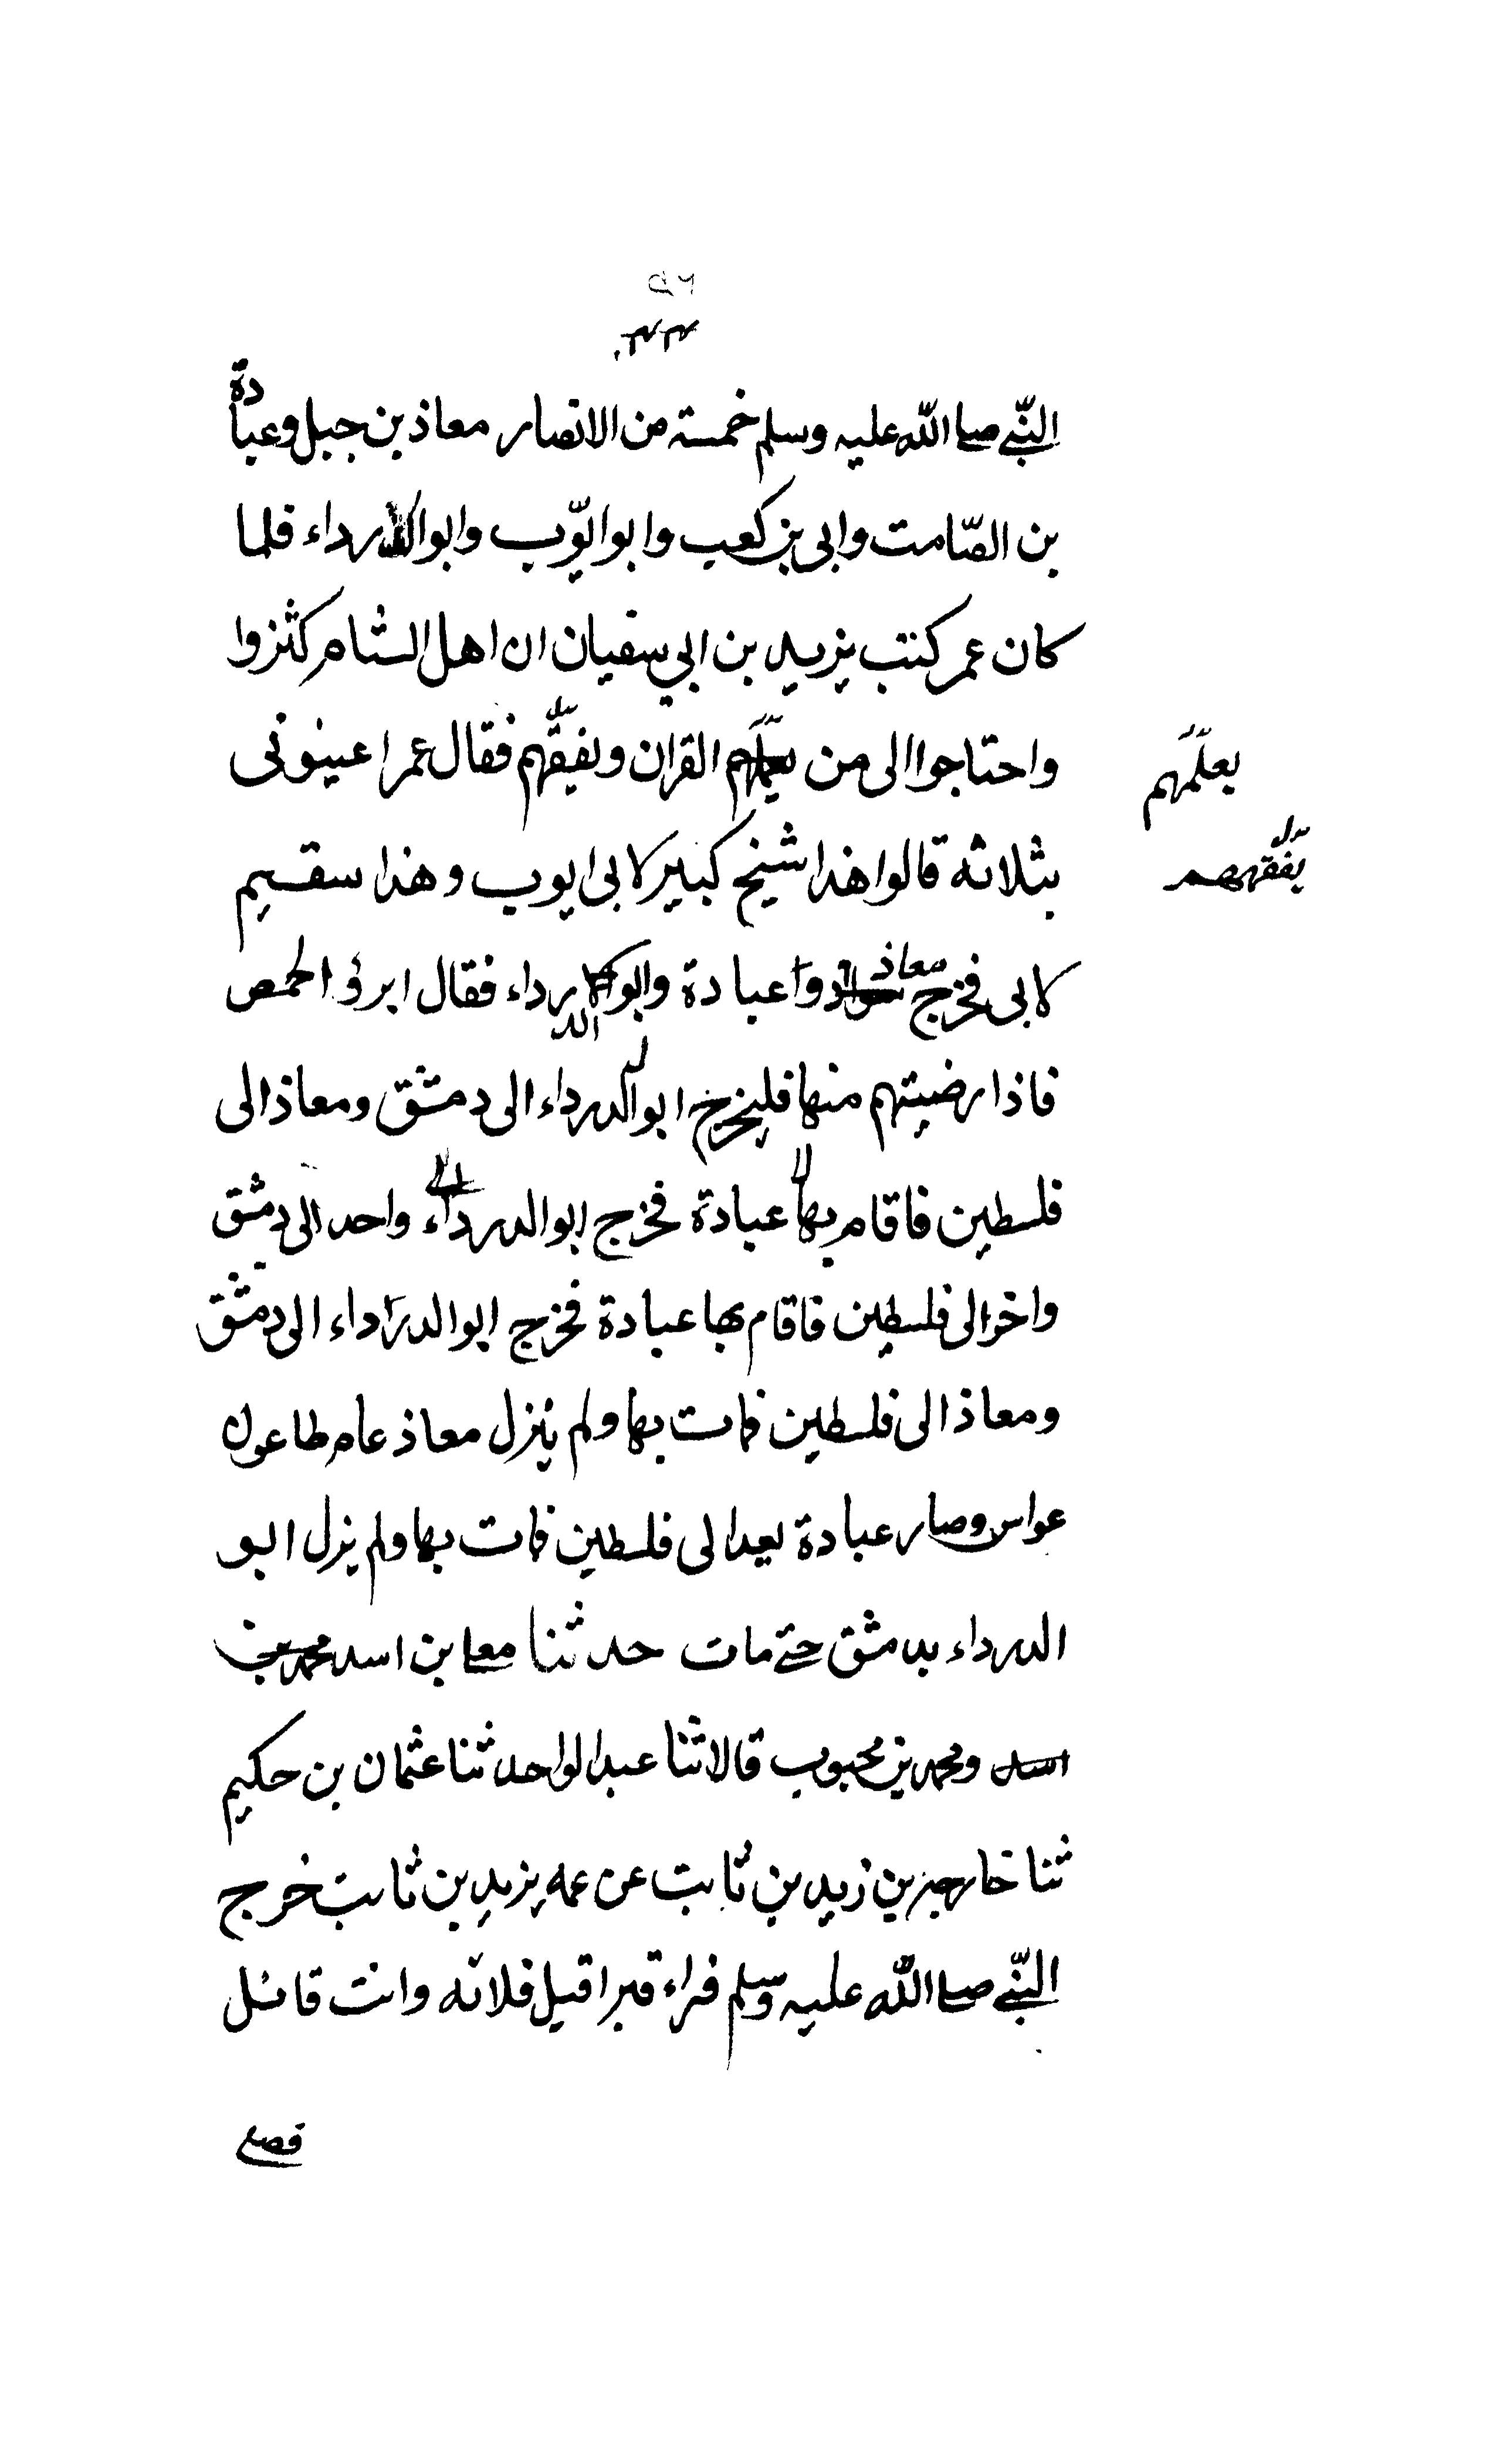 ٢٥
النبي صلى الله عليه وسلم خمسة من الانصار معاذ بن جبل وعبادة
بن الصّامت وابى بن كعب وابو ايّوب وابو الدرداء فلما
كان عمر كتب يزيد بن ابي سفيان ان اهل الشام كثروا
واحتاجوا الى من يعلمهم القران ويفقّههم فقال عمر اعينونى
يعلّمهم
يفقّههم
بثلاثه قالوا هذا شيخ كبير لابى ايوب وهذا سقيم
لابى فخرج معاذ وعبادة وابو الدرداء فقال ابدؤ الحمص
فاذا رضيتهم منها فليخرج ابو الدرداء الى دمشق ومعاذ الى
فلسطين فاقام بها عبادة فخرج ابو الدرداء واحد الى دمشق
واخر الى فلسطين فاقام بها عبادة فخرج ابو الدرداء الى دمشق
ومعاذ الى فلسطين فمات بها ولم ينزل معاذ عام طاعون
عمواس وصار عبادة بعد الى فلسطين فمات بها ولم يزل ابو
الدرداء بدمشق حتى مات حدثنا معلا بن اسد محمد بن
اسد ومحمد بن محبوب قالا ثنا عبد الواحد ثنا عثمان بن حكيم
ثنا خارجة بن زيد بن ثابت عن عمه يزيد بن ثابت خرج
النبي صلى الله عليه وسلم فراء قبرا قيل فلانه وانت قائل
فصلى